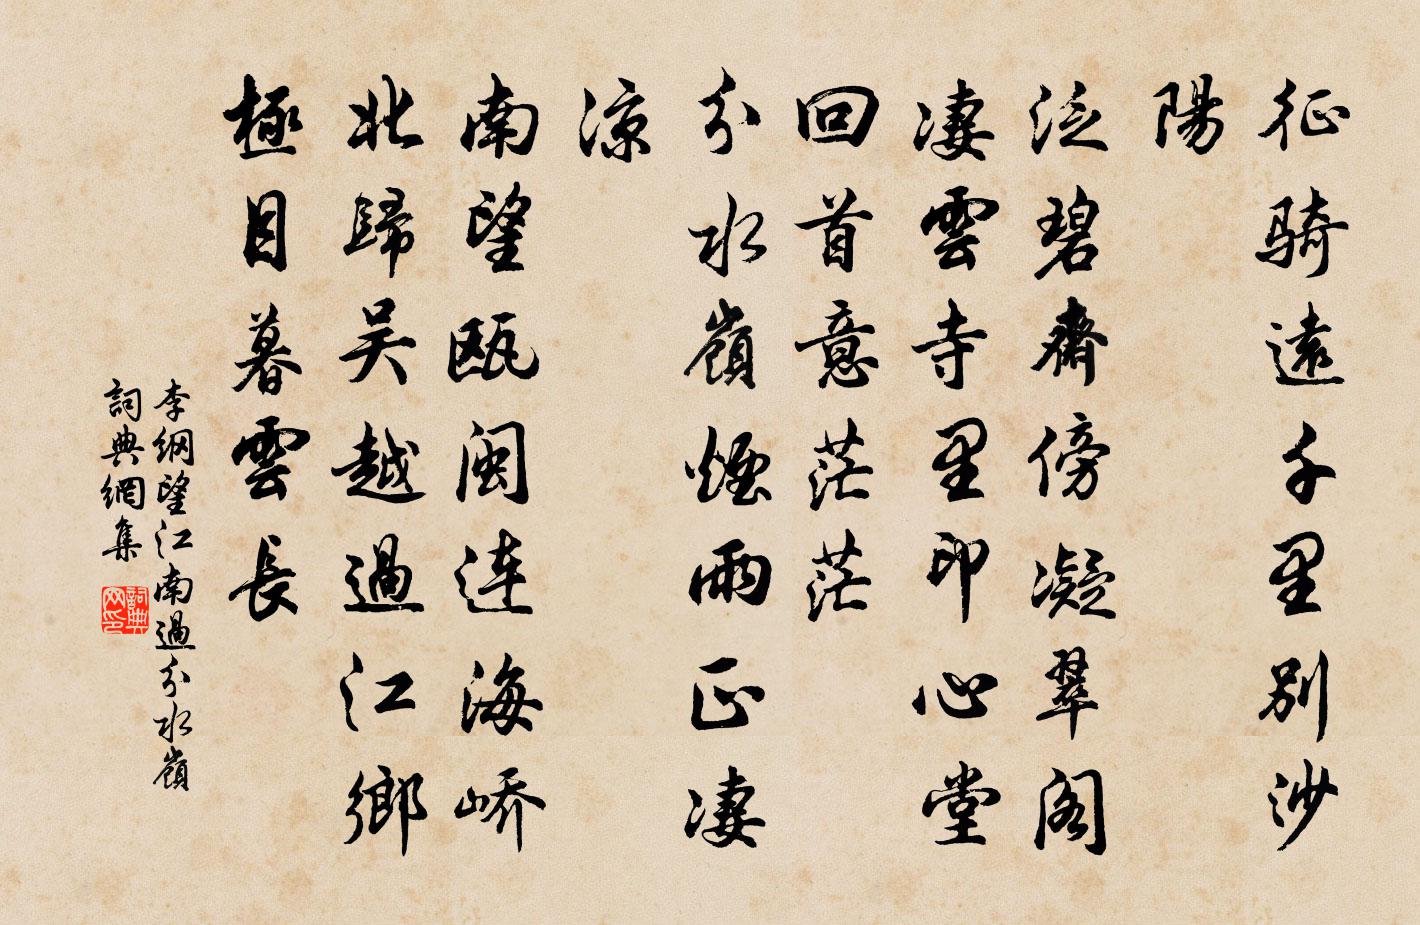 征騎遠千里別沙
陽
泛碧齋傍凝翠閣
凄雲寺里印心堂
回首意茫茫
分水嶺煙雨正凄
涼
南望瓯闽连海峤
北歸吴越過江鄉
極目暮雲長
李纲望江南過分水嶺
詞典網集
詞典网印